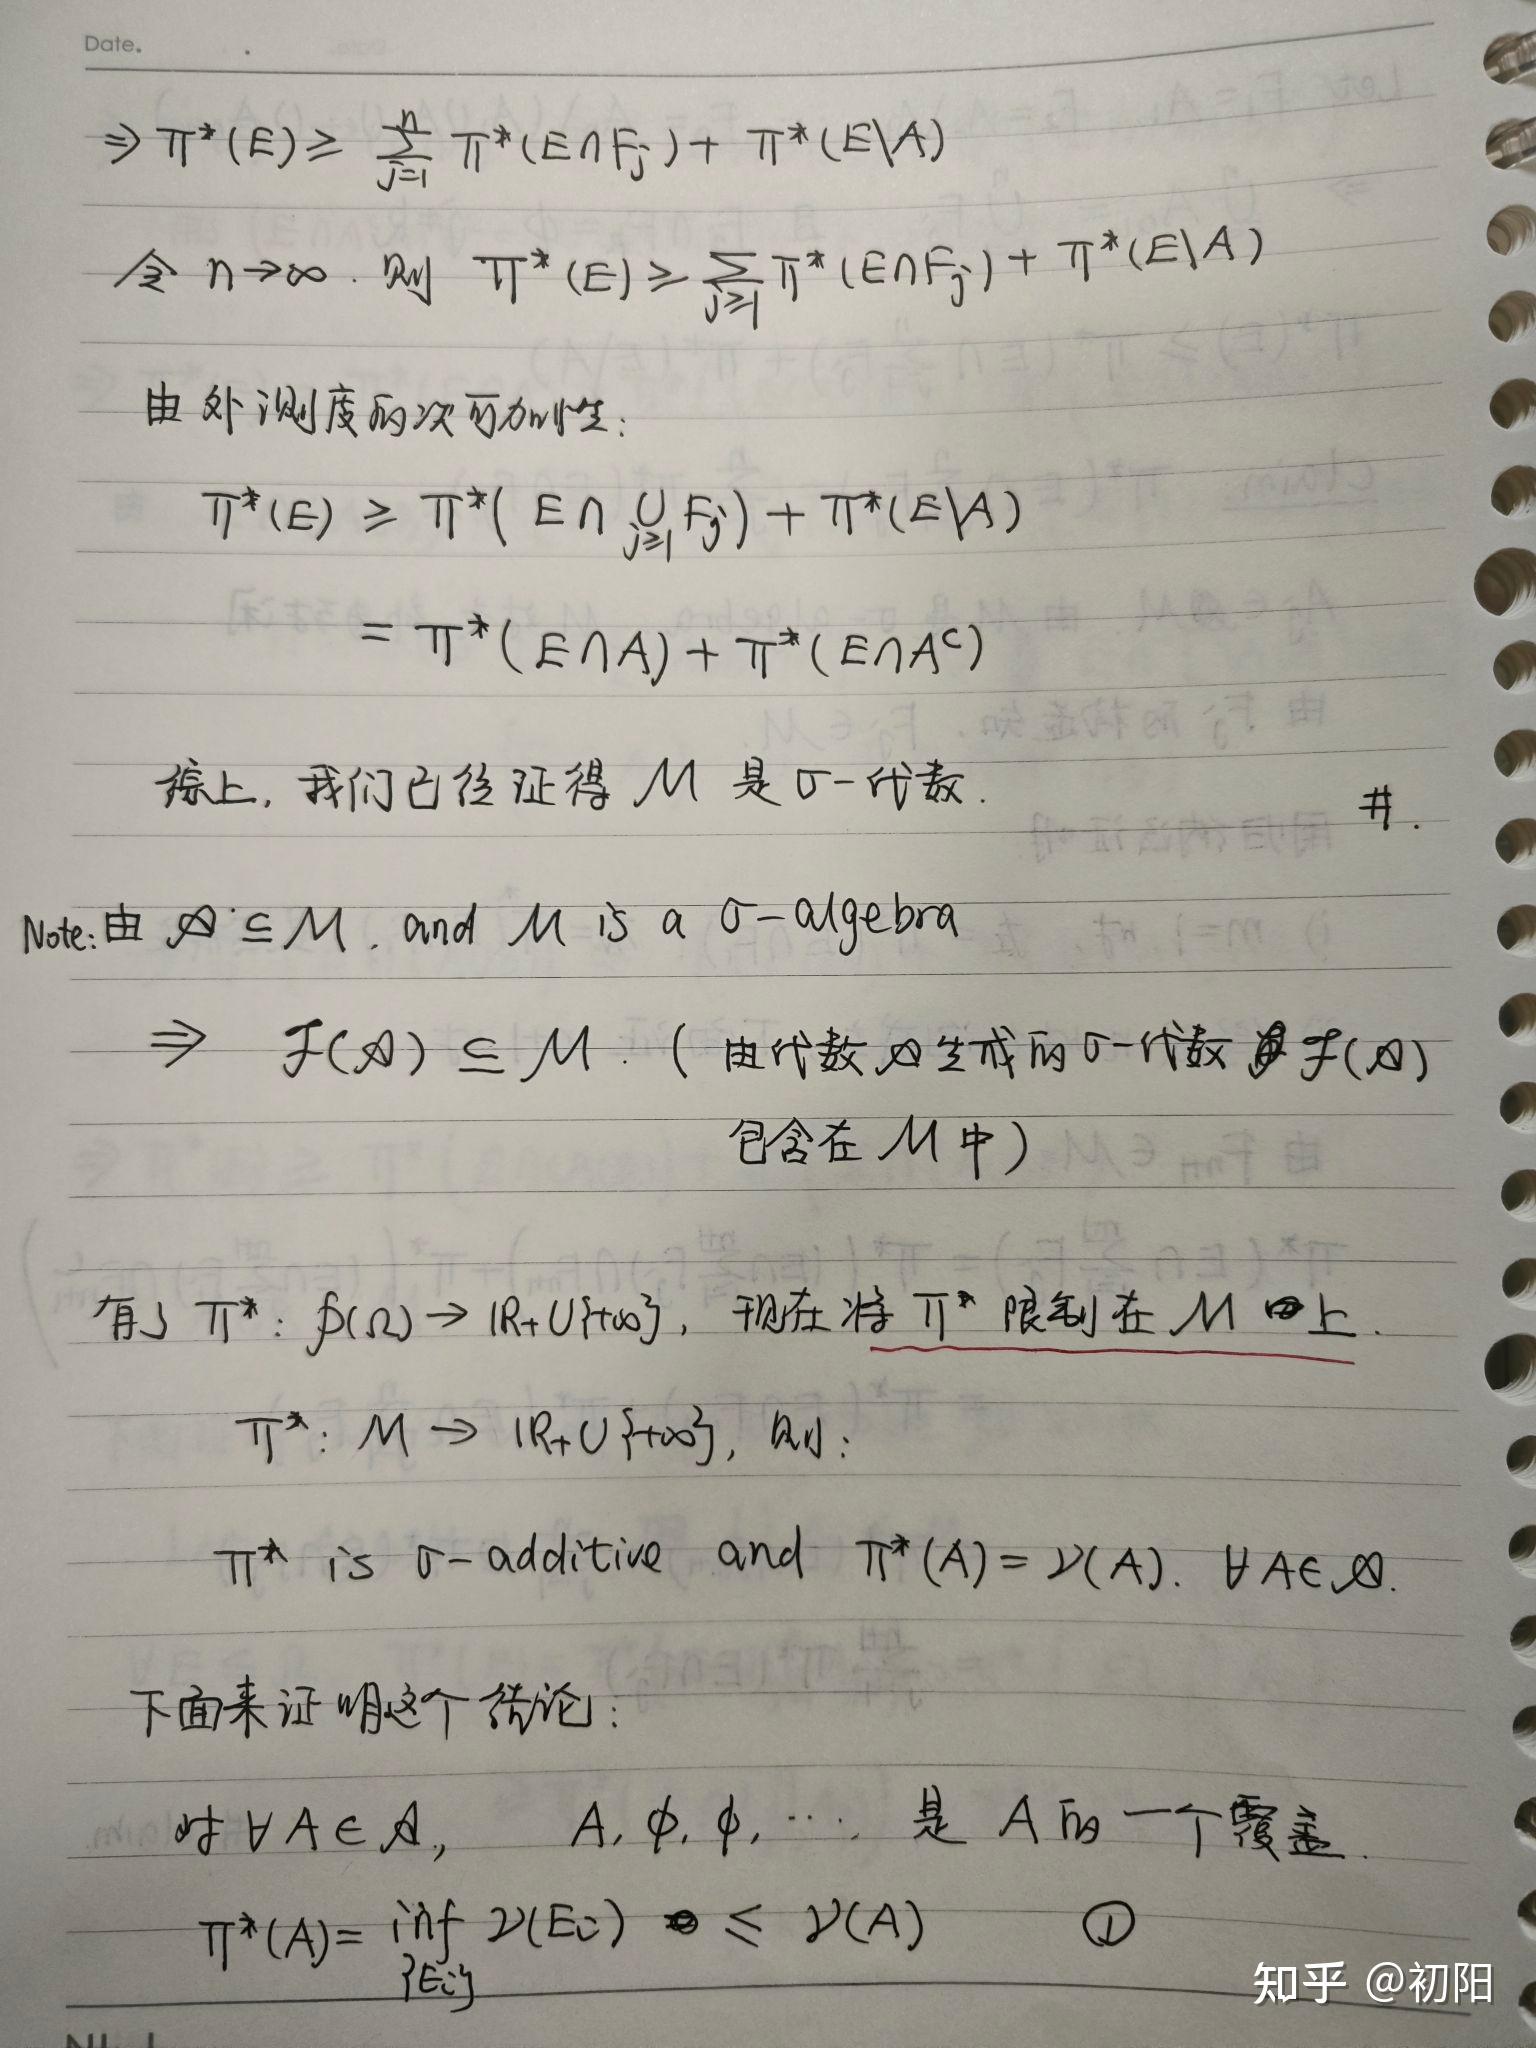 Date.
⇒ π*(E) ≥ ∑_{j=1}^{n} π*(E∩F_j) + π*(E\A)
令 n→∞. 则 π*(E) ≥ ∑_{j≥1} π*(E∩F_j) + π*(E\A)
由外测度的次可加性:
π*(E) ≥ π*(E∩ ∪_{j≥1} F_j) + π*(E\A)
= π*(E∩A) + π*(E∩A^c)
综上, 我们已经证得 M 是 σ-代数. #.
Note: 由 𝒜 ⊆ M. and M is a σ-algebra
⇒ F(𝒜) ⊆ M. ( 由代数 𝒜 生成的 σ-代数 F(𝒜)
包含在 M 中)
有了 π*: ℘(Ω) → ℝ₊∪{+∞}, 现在将 π* 限制在 M 上.
π*: M → ℝ₊∪{+∞}, 则:
π* is σ-additive and π*(A) = ν(A). ∀A∈𝒜.
下面来证明这个结论:
对 ∀A∈𝒜, A, ϕ, ϕ, ⋯. 是 A 的一个覆盖.
π*(A) = inf_{{E_i}} ν(E_i) ≤ ν(A) ①
知乎 @初阳